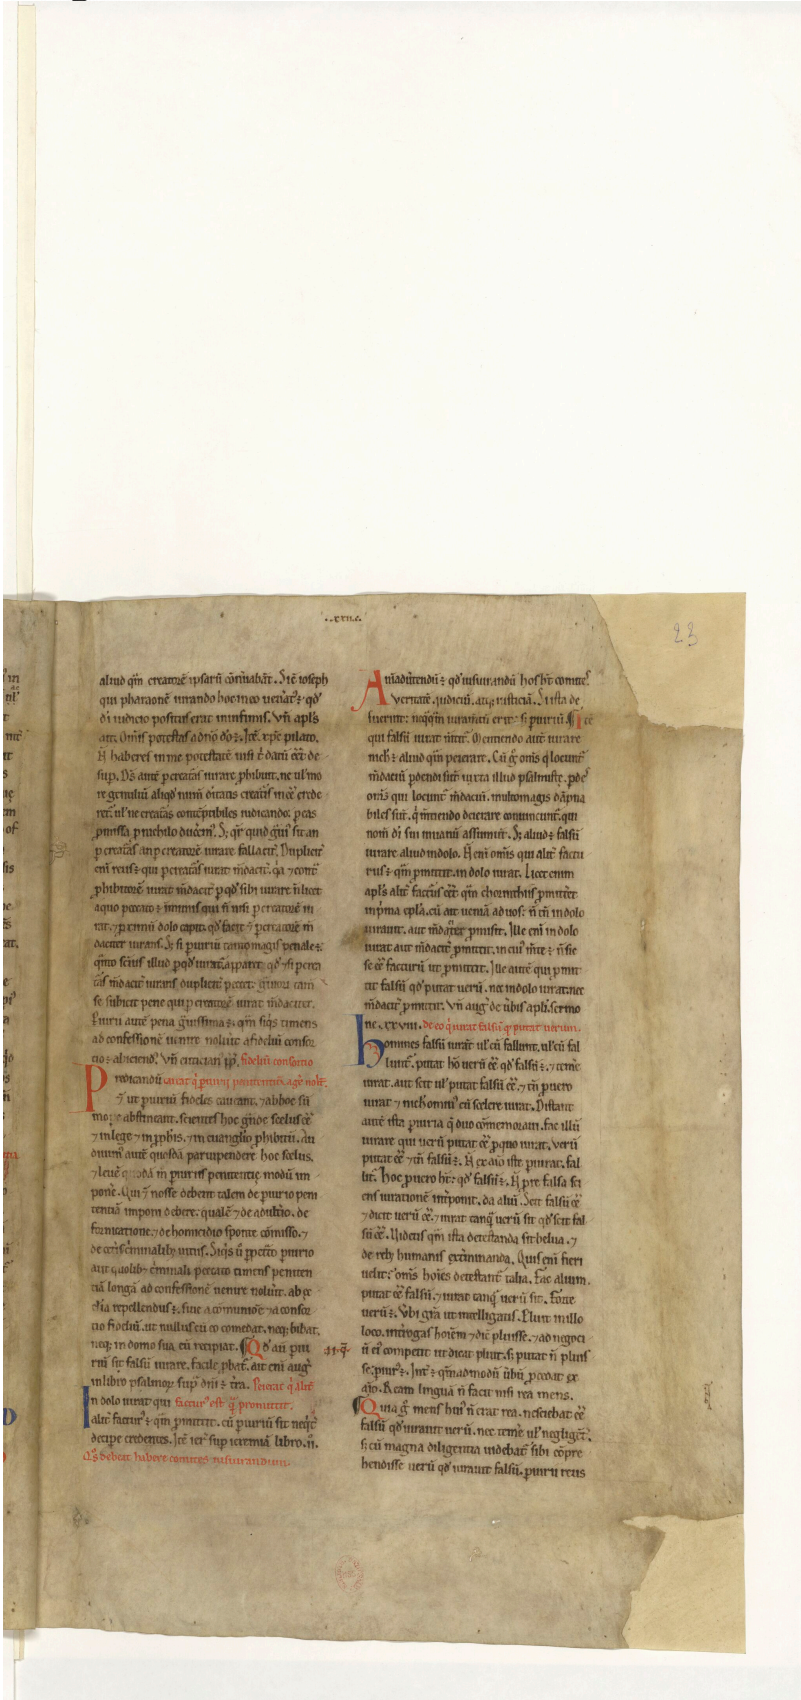 ..xxii.c.
23
aliud q̄m creatorē ipsarū cōtiuabāt. Sic ioseph
qui pharaonē iurando hoc in eo
di iudicio positus erat in infimis. Vn̄ apl's
ait. Om̄is potestas a dn̄o dō ē. Itē. xp̄c pilato.
N̄ haberes in me potestatē nisi t̄ datū eēt de
sup. D's autē p creat̄as iurare phibuit. ne ul' mo
re gentiliū aliqd numinis creat̄is inēē crede
ret. ul' ne creat̄as contēptibiles iudicando. p eas
pmissa p nichilo ducem'. S; q̄r quid gui' sit an
p creat̄as an p creatorē iurare fallacit̄. Duplicit̄
eni reus ē qui p creat̄as iurat m̄dacit̄. q̄a 7 cont̄
phibitorē iurat m̄dacit̄ p qd' sibi iurare n̄ licet
a quo peccato ē inmunis qui n̄ nisi p creatorē iu
rat. 7 p eximii dolo captu. qd' facit 7 p creatorē m̄
daciter iurans. S; si piuriū tanto magis penale ē.
q̄nto sc̄ius illud p qd' iurat̄. apparet qd' 7 si p crea
t̄as m̄dacit̄ iurans duplicit̄ peccet. guiori tam̄
se subicit pene qui p creatorē iurat m̄dacit̄.
Piurii autē pena guissima ē. q̄m siq's timens
ad confessionē uenire noluit a fideliū consor
cio ē abiciend'. Vn̄ euticianus pp. fideliū consortio
Predicandū careat q' piurii penitentiā agē nolit.
ē ut piuriū fideles caueant. 7 ab hoc sū
mope abstineant. scientes hoc gnde scelus eē
7 in lege 7 in pphis. 7 in euanglio phibitū. Au
diuim' autē quosdā paruipendere hoc scelus.
7 leuē quodā m̄ piuris penitentię modū im
ponē. Qui 7 nosse debent talem de piurio peni
tentiā imponi debere. qualē 7 de adult̄io. de
fornicatione. 7 de homicidio sponte cōmisso. 7
de cet̄is c̄minalib; uitiis. Siq's ū ppetrato piurio
aut quolib; c̄minali peccato timens peniten
tiā longā ad confessionē uenire noluit. ab ec
c̄lia repellendus ē. siue a cōmunione 7 a consor
cio fideliū. ut nullus cū eo comedat. neq; bibat.
neq; in domo sua eū recipiat. Qd' aū piu
riū sit falsū iurare. facile pbat̄. ait eni aug'
in libro psalmoꝝ sup dn̄i ē t̄ra. Peierat q' alit̄
In dolo iurat qui facturus est q̄m promittit.
alit̄ factur' ē q̄m pmittit. cū piuriū sit neqt̄
decipe credentes. Itē ier' sup ieremiā libro. ii.
Q's debeat habere comites iusiurandum.
.ii.q̄.
Animaduertendū ē qd' iusiurandū hos h̄t comites.
Veritatē. iudiciū. atq; iusticiā. Si ista de
fuerint. neq̄q̄m iuramtū erit. s; piuriū. Sic
qui falsū iurat mētit̄. Mentiendo autē iurare
nich' ē aliud q̄m peierare. Cū g' om̄s q' locunt̄
m̄daciū pdendi sint iuxta illud psalmistę. pdes
om̄s qui locunt̄ m̄daciū. multo magis dāpna
biles sunt. q' m̄tiendo deierare conuincunt̄. qui
nom̄ di sui in uanū assumunt. S; aliud ē falsū
iurare aliud in dolo. N̄ eni om̄is qui alit̄ factu
rus ē q̄m pmittit. in dolo iurat. Licet enim
apl's alit̄ factus eēt q̄m chorinthiis pmitteret
in pma epl'a. cū ait ueniā ad uos. n̄ tn̄ in dolo
iurauit. aut m̄dacit̄ pmisit. Ille eni in dolo
iurat aut m̄dacit̄ pmittit. in cui' m̄te ē n̄ sic
se eē facturū ut pmittit. Ille autē qui pmit
tit falsū qd' putat uerū. nec in dolo iurat. nec
m̄dacit̄ pmittit. Vn̄ aug' de ūbis apl'i sermo
ne .xxviii. de eo q' iurat falsū q' putat uerum.
homines falsū iurāt ul' cū fallunt. ul' cū fal
lunt̄. putat hō uerū eē qd' falsū ē. 7 tem̄e
iurat. aut scit ul' putat falsū eē. 7 tn̄ p uero
iurat 7 nich'omin' cū scelere iurat. Distant
autē ista piuria q̄ duo cōmemoraui. Fac illū
iurare qui uerū putat eē p quo iurat. Verū
putat eē 7 tn̄ falsū ē. N̄ ex aīo iste piurat. fal
lit̄. hoc p uero h̄t. qd' falsū ē. N̄ p re falsa sci
ens iurationē int̄ponit. Da aliū. Scit falsū eē
7 dicit uerū eē. 7 iurat tanq̄ uerū sit qd' scit fal
sū eē. Videtis q̄m ista detestanda sit belua. 7
de reb; humanis ext̄minanda. Quis eni fieri
uelit. om̄s hoīes detestant̄ talia. Fac alium.
putat eē falsū. 7 iurat tanq̄ uerū sit. Forte
uerū ē. Vbi gr̄a ut intelligatis. Pluit in illo
loco. int̄rogas hoīem 7 dic̄ pluisse. 7 ad negoci
ū ei' competit ut dicat pluit. s; putat n̄ pluis
se. piur' ē. Int̄ ē q̄madmodū ūbū pcedat ex
aīo. Ream linguā n̄ facit nisi rea mens.
Quia g' mens hui' n̄ erat rea. nesciebat eē
falsū qd' iurauit uerū. nec tem̄e ul' negligent̄.
s; cū magna diligentia uidebat̄ sibi cōpre
hendisse uerū qd' iurauit falsū. piurii reus